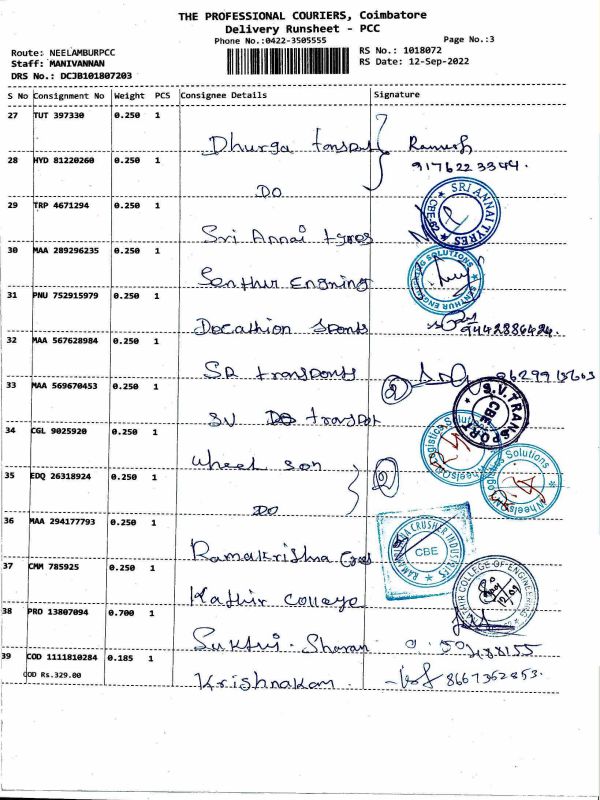 THE PROFESSIONAL COURIERS, Coimbatore
Delivery Runsheet - PCC
Phone No.:0422-3505555
Page No.:3
Route: NEELAMBURPCC
RS No.: 1018072
Staff: MANIVANNAN
RS Date: 12-Sep-2022
DRS No.: DCJB101807203
S No Consignment No Weight PCS Consignee Details Signature
27 TUT 397330 0.250 1
Dhurga transport Ramesh
28 HYD 81220260 0.250 1
9176223344.
DO
29 TRP 4671294 0.250 1
SRI ANNAI TYRES
CBE-62
Sri Annai tyres
30 MAA 289296235 0.250 1
SENTHUR ENGINEERING SOLUTIONS
Senthur Engning
31 PNU 752915979 0.250 1
Decathlon sports 9442886424.
32 MAA 567628984 0.250 1
SR transports
33 MAA 569670453 0.250 1
S.V.TRANSPORT
CBE
SV DO transport
34 CGL 9025920 0.250 1
Wheelsonlogistics Solutions
Wheel son 2
35 EDQ 26318924 0.250 1
Wheelsonlogistics Solutions
DO
36 MAA 294177793 0.250 1
CRUSHER INDUSTRIES
CBE
Ramakrishna
37 CMM 785925 0.250 1
KATHIR COLLEGE OF ENGINEERING
12/09
Kathir College
38 PRO 13807094 0.700 1
Sukhri. Sharan
39 COD 1111810284 0.185 1
COD Rs.329.00
Krishnakan 8667362853.